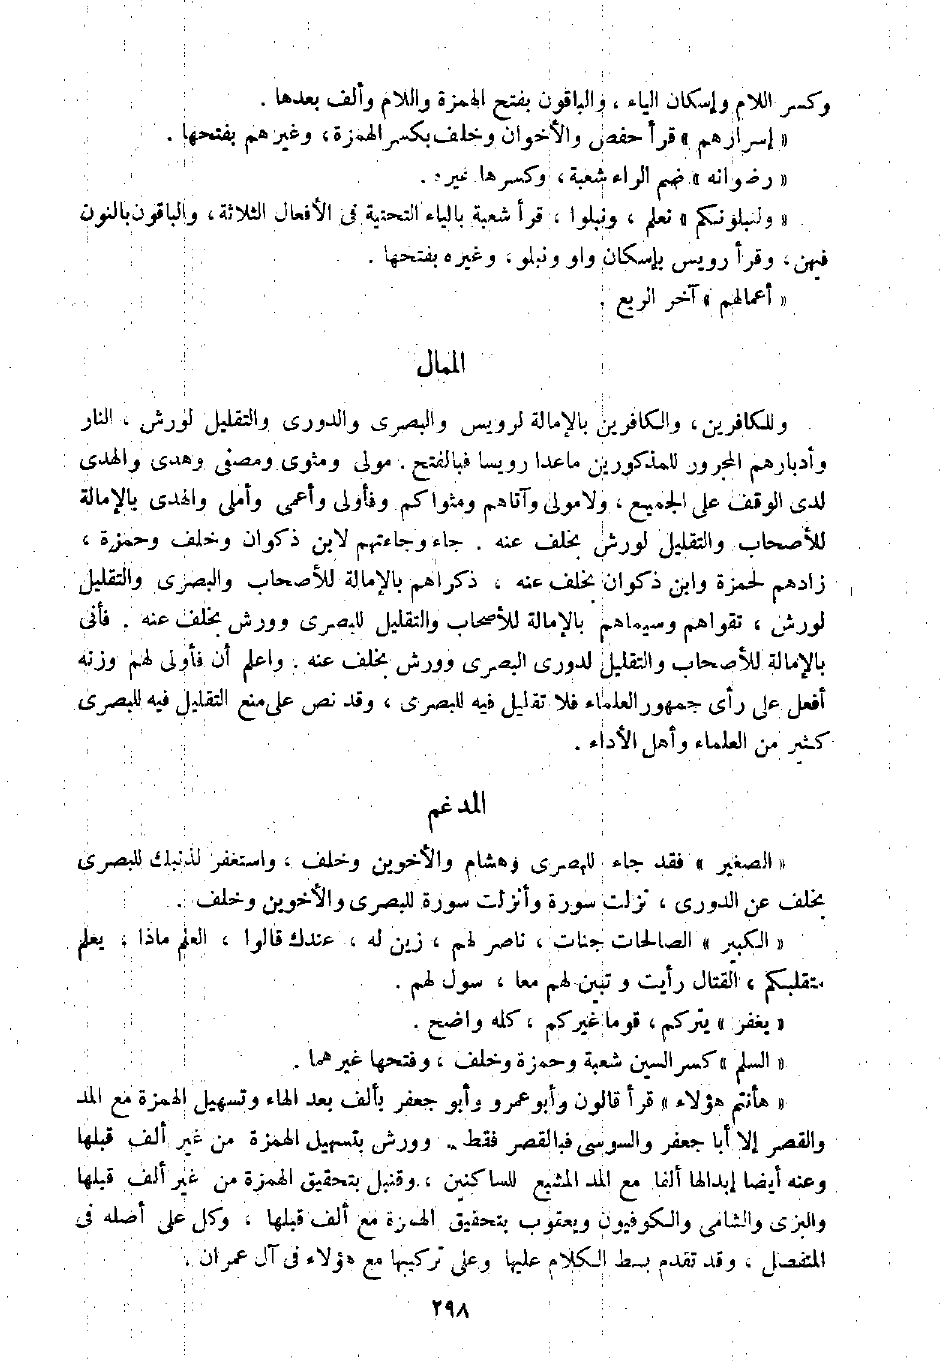 وكسر اللام وإسكان الياء ، والباقون بفتح الهمزة واللام وألف بعدها .
« إسرارهم » قرأ حفص والأخوان وخلف بكسر الهمزة ، وغيرهم بفتحها .
« رضوانه » ضم الراء شعبة ، وكسرها غيره .
« ولنبلونكم » نعلم ، ونبلوا ، قرأ شعبة بالياء التحتية فى الأفعال الثلاثة ، والباقون بالنون
فيهن ، وقرأ رويس بإسكان واو ونبلو ، وغيره بفتحها .
« أعمالهم » آخر الربع .
الممال
وللكافرين ، والكافرين بالإمالة لرويس والبصرى والدورى والتقليل لورش ، النار
وأدبارهم المجرور للمذكورين ماعدا رويسا فبالفتح . مولى ومثوى ومصفى وهدى والهدى
لدى الوقف على الجميع ، ولامولى وآتاهم ومثواكم وفأولى وأعمى وأملى والهدى بالإمالة
للأصحاب والتقليل لورش بخلف عنه . جاء وجاءتهم لابن ذكوان وخلف وحمزة ،
زادهم لحمزة وابن ذكوان بخلف عنه ، ذكراهم بالإمالة للأصحاب والبصرى والتقليل
لورش ، تقواهم وسيماهم بالإمالة للأصحاب والتقليل للبصرى وورش بخلف عنه . فأنى
بالإمالة للأصحاب والتقليل لدورى البصرى وورش بخلف عنه . واعلم أن فأولى لهم وزنه
أفعل على رأى جمهور العلماء فلا تقليل فيه للبصرى ، وقد نص على منع التقليل فيه للبصرى
كثير من العلماء وأهل الأداء .
المدغم
« الصغير » فقد جاء للبصرى وهشام والأخوين وخلف ، واستغفر لذنبك للبصرى
بخلف عن الدورى ، نزلت سورة وأنزلت سورة للبصرى والأخوين وخلف .
« الكبير » الصالحات جنات ، ناصر لهم ، زين له ، عندك قالوا ، العلم ماذا ، يعلم
متقلبكم ، القتال رأيت و تبين لهم معا ، سول لهم .
« يغفر » يتركم ، قوما غيركم ، كله واضح .
« السلم » كسر السين شعبة وحمزة وخلف ، وفتحها غيرهما .
« هأنتم هؤلاء » قرأ قالون وأبو عمرو وأبو جعفر بألف بعد الهاء وتسهيل الهمزة مع المد
والقصر إلا أبا جعفر والسوسى فبالقصر فقط .. وورش بتسهيل الهمزة من غير ألف قبلها
وعنه أيضا إبدالها ألفا مع المد المشبع للساكنين ، وقنبل بتحقيق الهمزة من غير ألف قبلها
والبزى والشامى والكوفيون ويعقوب بتحقيق الهمزة مع ألف قبلها ، وكل على أصله فى
المنفصل ، وقد تقدم بسط الكلام عليها وعلى تركيبها مع هؤلاء فى آل عمران .
٢٩٨